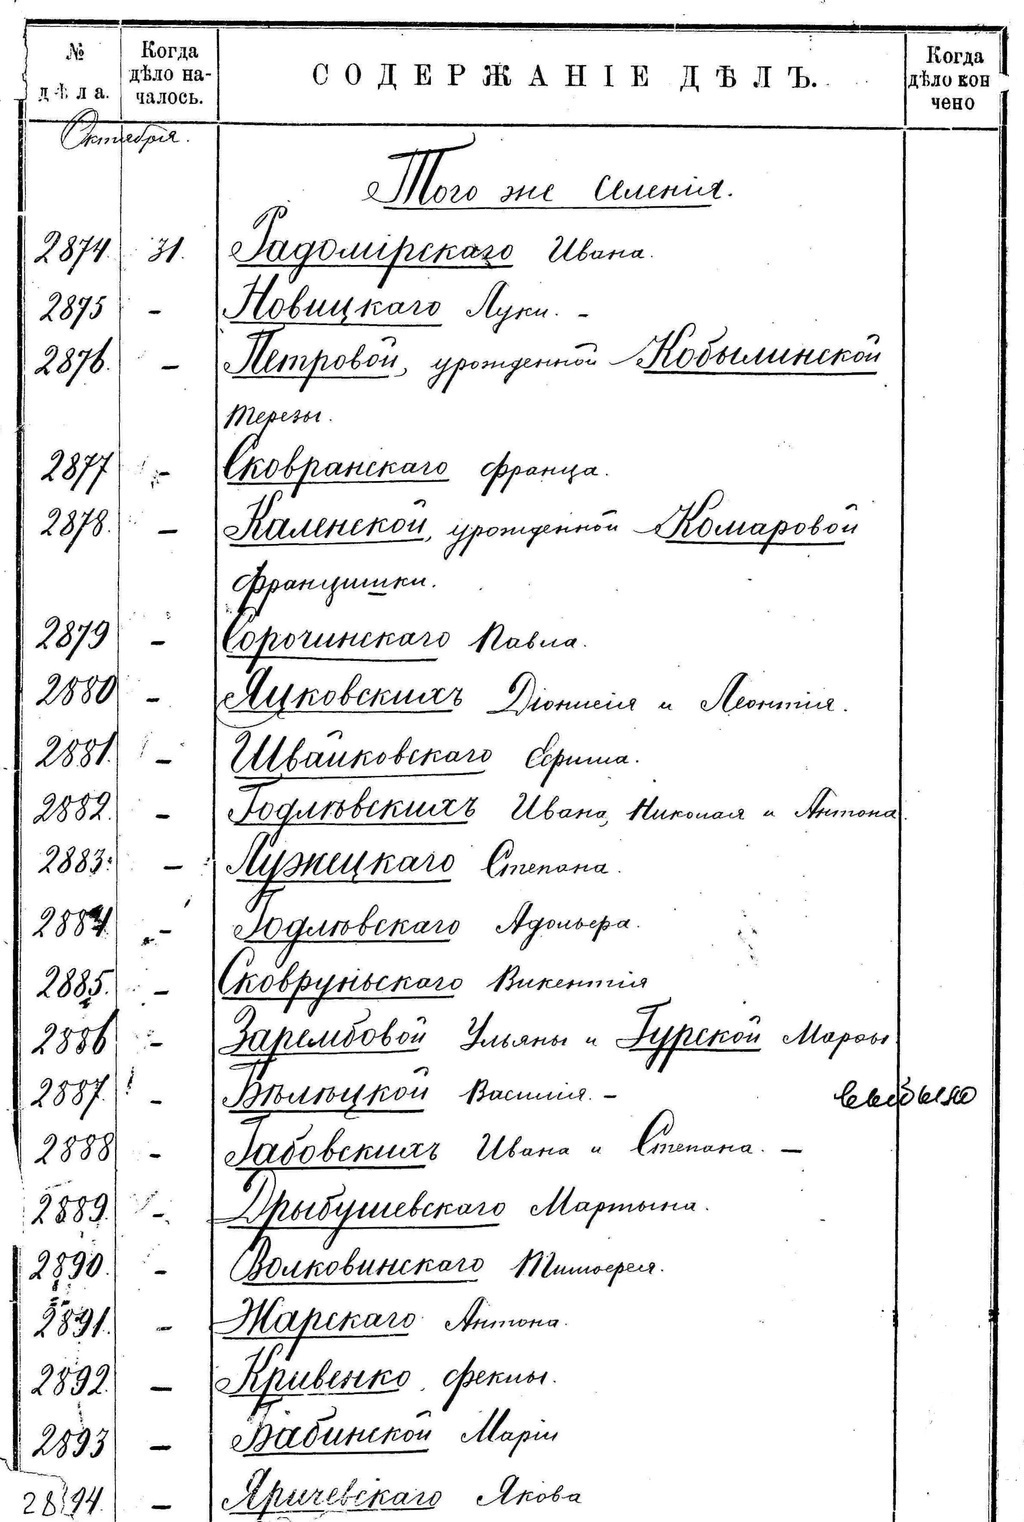 № дѣла. Когда дѣло началось. СОДЕРЖАНІЕ ДѢЛЪ. Когда дѣло кончено
Октября.
Того же селенія.
2874 31. Радомірскаго Ивана.
2875 - Новицкаго Луки. -
2876. - Петровой, урожденной Кобылинской
Терезы.
2877 - Сковранскаго Франца.
2878. - Каленской, урожденной Комаровой
Францишки.
2879 - Сорочинскаго Павла.
2880 - Яцковскихъ Діонисія и Леонтія.
2881. - Швайковскаго Ефима.
2882. - Годлѣвскихъ Ивана, Николая и Антона.
2883. - Лужецкаго Степана.
2884. - Годлѣвскаго Адольфа.
2885. - Сковруньскаго Викентія
2886 - Зарембовой Ульяны и Гурской Марфы.
2887. - Бѣлецкой Василія. - выбыло
2888 - Габовскихъ Ивана и Степана. -
2889. - Дрыбушевскаго Мартына.
2890. - Волковинскаго Тимофея.
2891. - Жарскаго Антона.
2892. - Кривенко Феклы.
2893 - Бабинской Маріи
2894. - Яричевскаго Якова